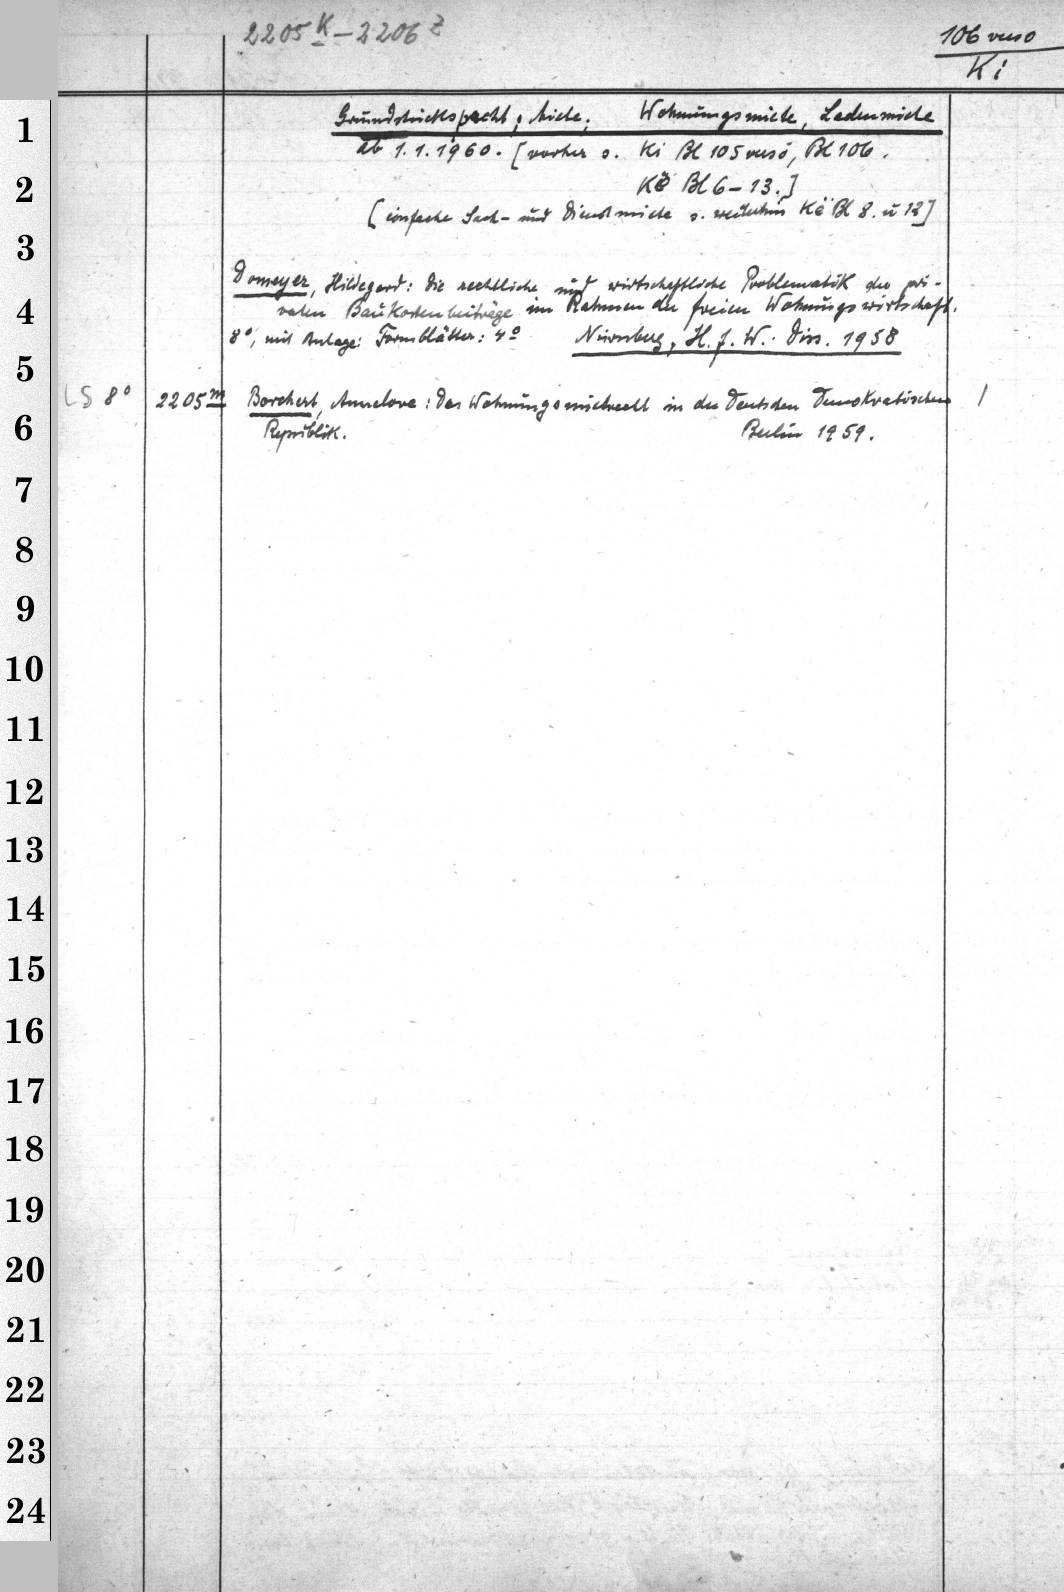 2205 K – 2206 Z
106 verso
Ki
Grundstückspacht, Miete, Wohnungsmiete, Ladenmiete
ab 1.1.1960. [vorher s. Ki Bl 105 verso, Bl 106.
Kë Bl 6–13.]
[einfache Sach- und Dienstmiete s. weiterhin Kë Bl 8. u 12]
Domeyer, Hildegard: Die rechtliche und wirtschaftliche Problematik der pri-
vaten Baukostenbeiträge im Rahmen der freien Wohnungswirtschaft.
8°, mit Anlage: Formblätter: 4° Nürnberg, H. f. W. Diss. 1958
LS 8° 2205 m Borchert, Annelore: Das Wohnungsmietrecht in der Deutschen Demokratischen 1
Republik. Berlin 1959.
1
2
3
4
5
6
7
8
9
10
11
12
13
14
15
16
17
18
19
20
21
22
23
24